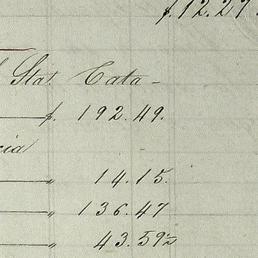 f. 12.27
Stat. Cata-
f. 192.49.
cia
" 14.15.
" 136.47
" 43.59½